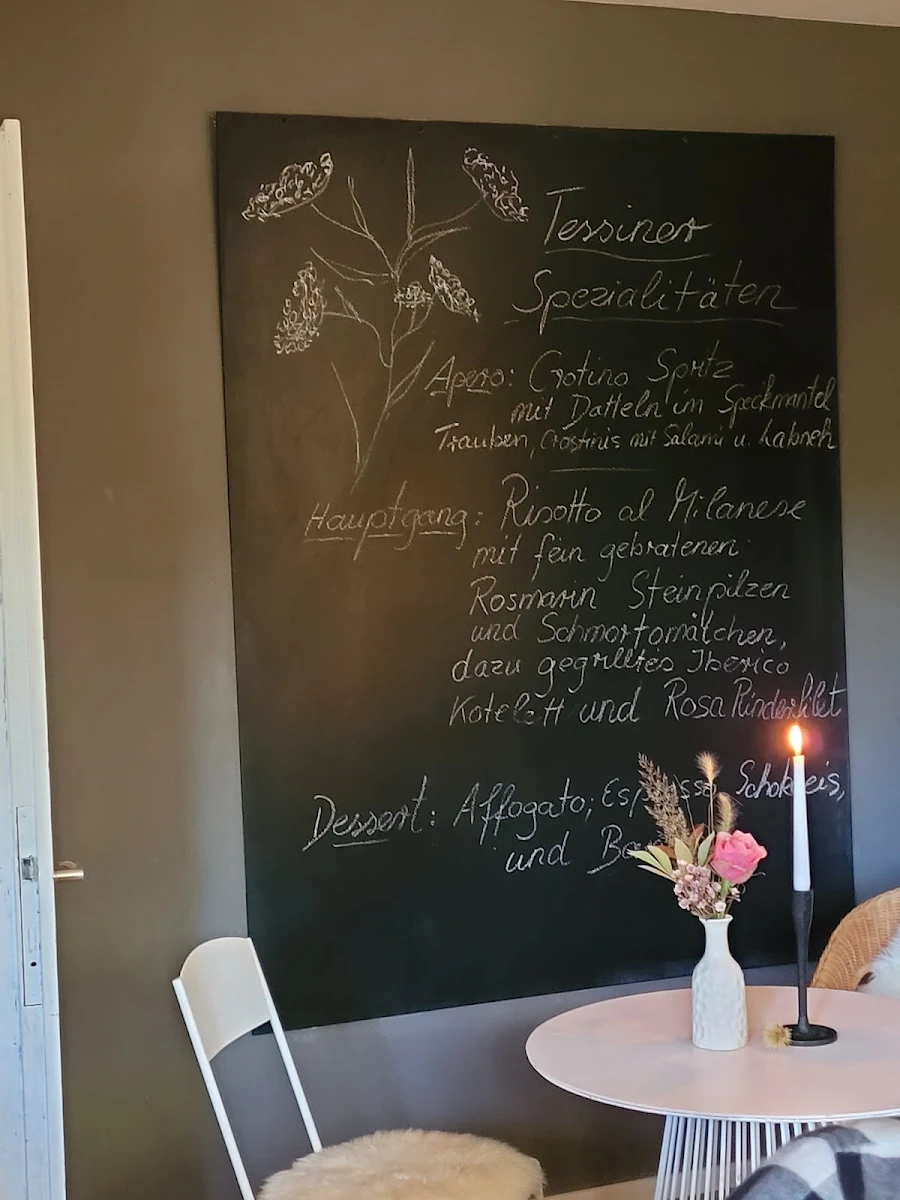 Tessiner
Spezialitäten
Apero: Crotino Spritz
mit Datteln im Speckmantel
Trauben, Crostinis mit Salami u. Labneh
Hauptgang: Risotto al Milanese
mit fein gebratenen
Rosmarin Steinpilzen
und Schmortomätchen,
dazu gegrilltes Iberico
Kotelett und Rosa Rinderfilet
Dessert: Affogato; Espresso, Schokoeis,
und